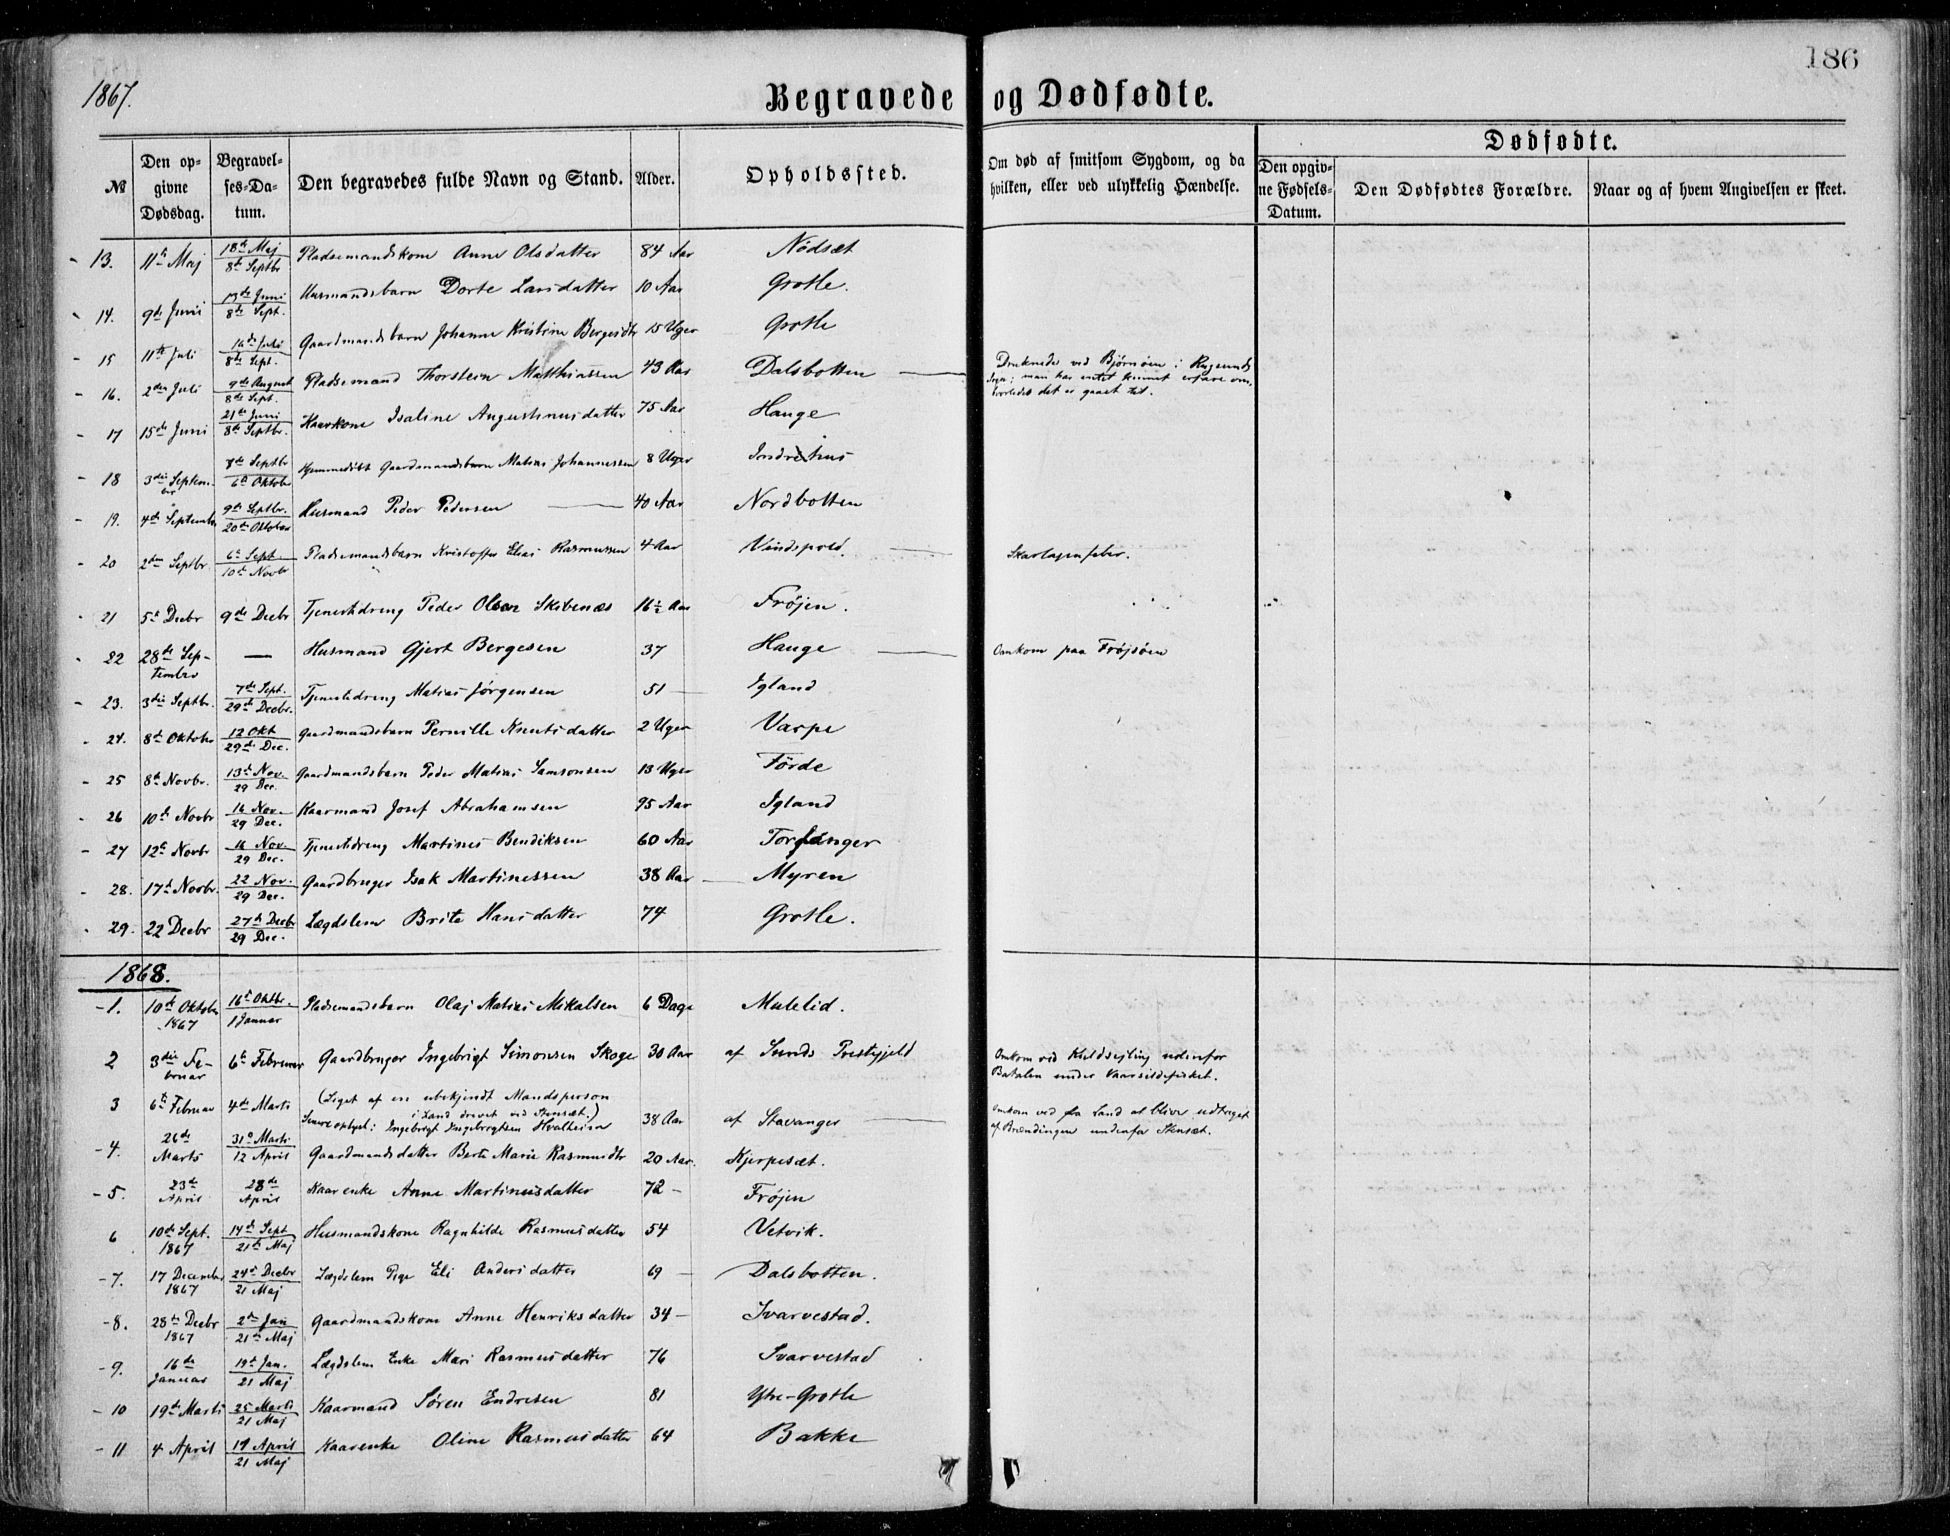 186
1867.
Begravede og Dødfødte.
№
Den opgivne Dødsdag.
Begravelses-Datum.
Den begravedes fulde Navn og Stand.
Alder.
Opholdssted.
Om død af smitsom Sygdom, og da hvilken, eller ved ulykkelig Hændelse.
Dødfødte.
Den opgivne Fødsels-Datum.
Den Dødfødtes Forældre.
Naar og af hvem Angivelsen er skeet.
13. 11te Maj 18de Maj / 8de Septbr Pladsemandskone Anne Olsdatter 84 Aar Nødsæt
14. 9de Juni 13de Juni / 8de Sept. Husmandsbarn Dorte Larsdatter 10 Aar Grotle.
15 11te Juli 16de Juli / 8de Sept. Gaardmandsbarn Johanne Kristine Bergesdtr 15 Uger Grotle
16. 2den Juli 9de August / 8de Sept. Pladsemand Thorstein Matthiassen 43 Aar Dalsbotten Druknede ved Bjørnøen i
man har intet kunnet erfare om,
hvorledes det er gaaet til.
17 15de Juni 21de Juni / 8de Septbr. Kaarkone Isaline Augustinusdatter 75 Aar Hauge
18 3die September 8de Septbr / 6te Oktober Hjemmedøbt Gaardmandsbarn Matias Johannessen 8 Uger Indrehus
19. 4de September 9de Septbr. / 20de Oktober Husmand Peder Pedersen 40 Aar Nordbotten
20 2den Septbr 6te Sept / 10de Novbr Pladsemandsbarn Kristoffer Elias Rasmussen 4 Aar Vindspold. Skarlagensfeber.
21 5te Decbr 9de Decbr Tjenestdreng Peder Olsen Skibenes 16½ Aar Frøjen.
22 28de September — Husmand Gjert Bergesen 37 Hauge Omkom paa Frøjsøen
23. 3die Septbr. 7de Sept. / 29de Decbr. Tjenestdreng Matias Jørgensen 51 — Igland
24. 8de Oktober 12 Okt / 29de Dec. Gaardmandsbarn Pernille Knutsdatter 2 Uger Varpe
25 8de Novbr. 13de Nov. / 29 Dec. Gaardmandsbarn Peder Matias Samsonsen 13 Uger Førde
26 10de Novbr 16 Nov. / 29 Dec. Kaarmand Josef Abrahamsen 95 Aar Igland
27 12te Novbr 16 Nov. / 29 Dec. Tjenestdreng Martines Bendiksen 60 Aar Torfanger
28. 17de Novbr. 22 Nov. / 29 Dec. Gaardbruger Isak Martinessen 38 Aar Myren
29. 22 Decbr 27de Decbr / 29 Dec. Lægdslem Brite Hansdatter 74 Grotle.
1868.
1. 10de Oktober 1867 16de Oktbr. / 1 Januar Pladsemandsbarn Olaj Matias Mikalsen 6 Dage Mulelid.
2 3die Februar 6te Februar Gaardbruger Ingebrigt Simonsen Skoge 30 Aar af Sunds Prestgjeld Omkom ved Kuldsejling udenfor
Batalen under Vaarsildefisket.
3 6te Februar 4de Marts (Liget af en ubekjendt Mandsperson
i Land drevet ved Stensæt.)
Senere oplyst: Ingebrigt Ingebrigtsen Hvalheim 38 Aar af Stavanger Omkom ved fra Land at blive udtaget
af Brændingen udenfor Stensæt.
4. 26de Marts 31te Marts / 12 April Gaardmandsdatter Berte Marie Rasmusdtr 20 Aar. Kjerpesæt.
5. 23de April 28de April Kaarenke Anne Martinusdatter 72 — Frøjen
6 10de Sept. 1867 14de Sept / 21de Maj Husmandskone Ragnhilde Rasmusdatter 54 Vetvik.
7. 17 December 1867 24de Decbr / 21 Maj Lægdslem Pige Eli Andersdatter 69 — Dalsbotten.
8. 28de Decbr 1867 2den Jan / 21de Maj Gaardmandskone Anne Henriksdatter 34 — Ivarvestad.
9. 16de Januar 19de Jan. / 21 Maj Lægdslem Enke Mari Rasmusdatter 76 Svarvestad
10 19de Marts 25 Marts / 21 Maj Kaarmand Søren Endresen 81 Ytre-Grotle
11 4 April 19 April / 21 Maj Kaarenke Oline Rasmusdatter 64 Bakke